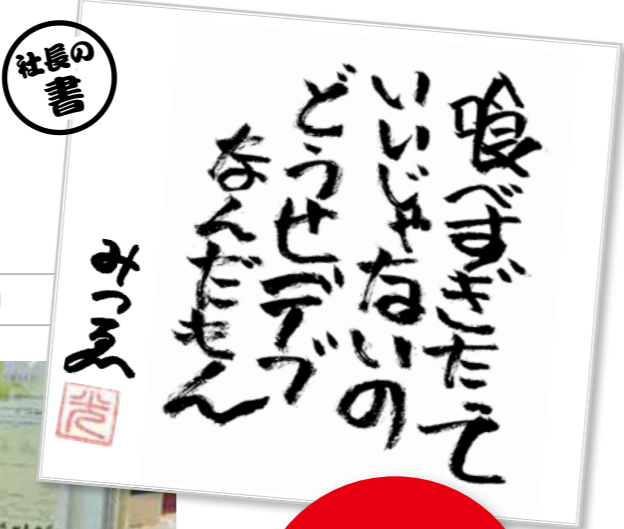 社長の
書
喰べすぎたって
いいじゃないの
どうせデブ
なんだもん
みつゑ
光